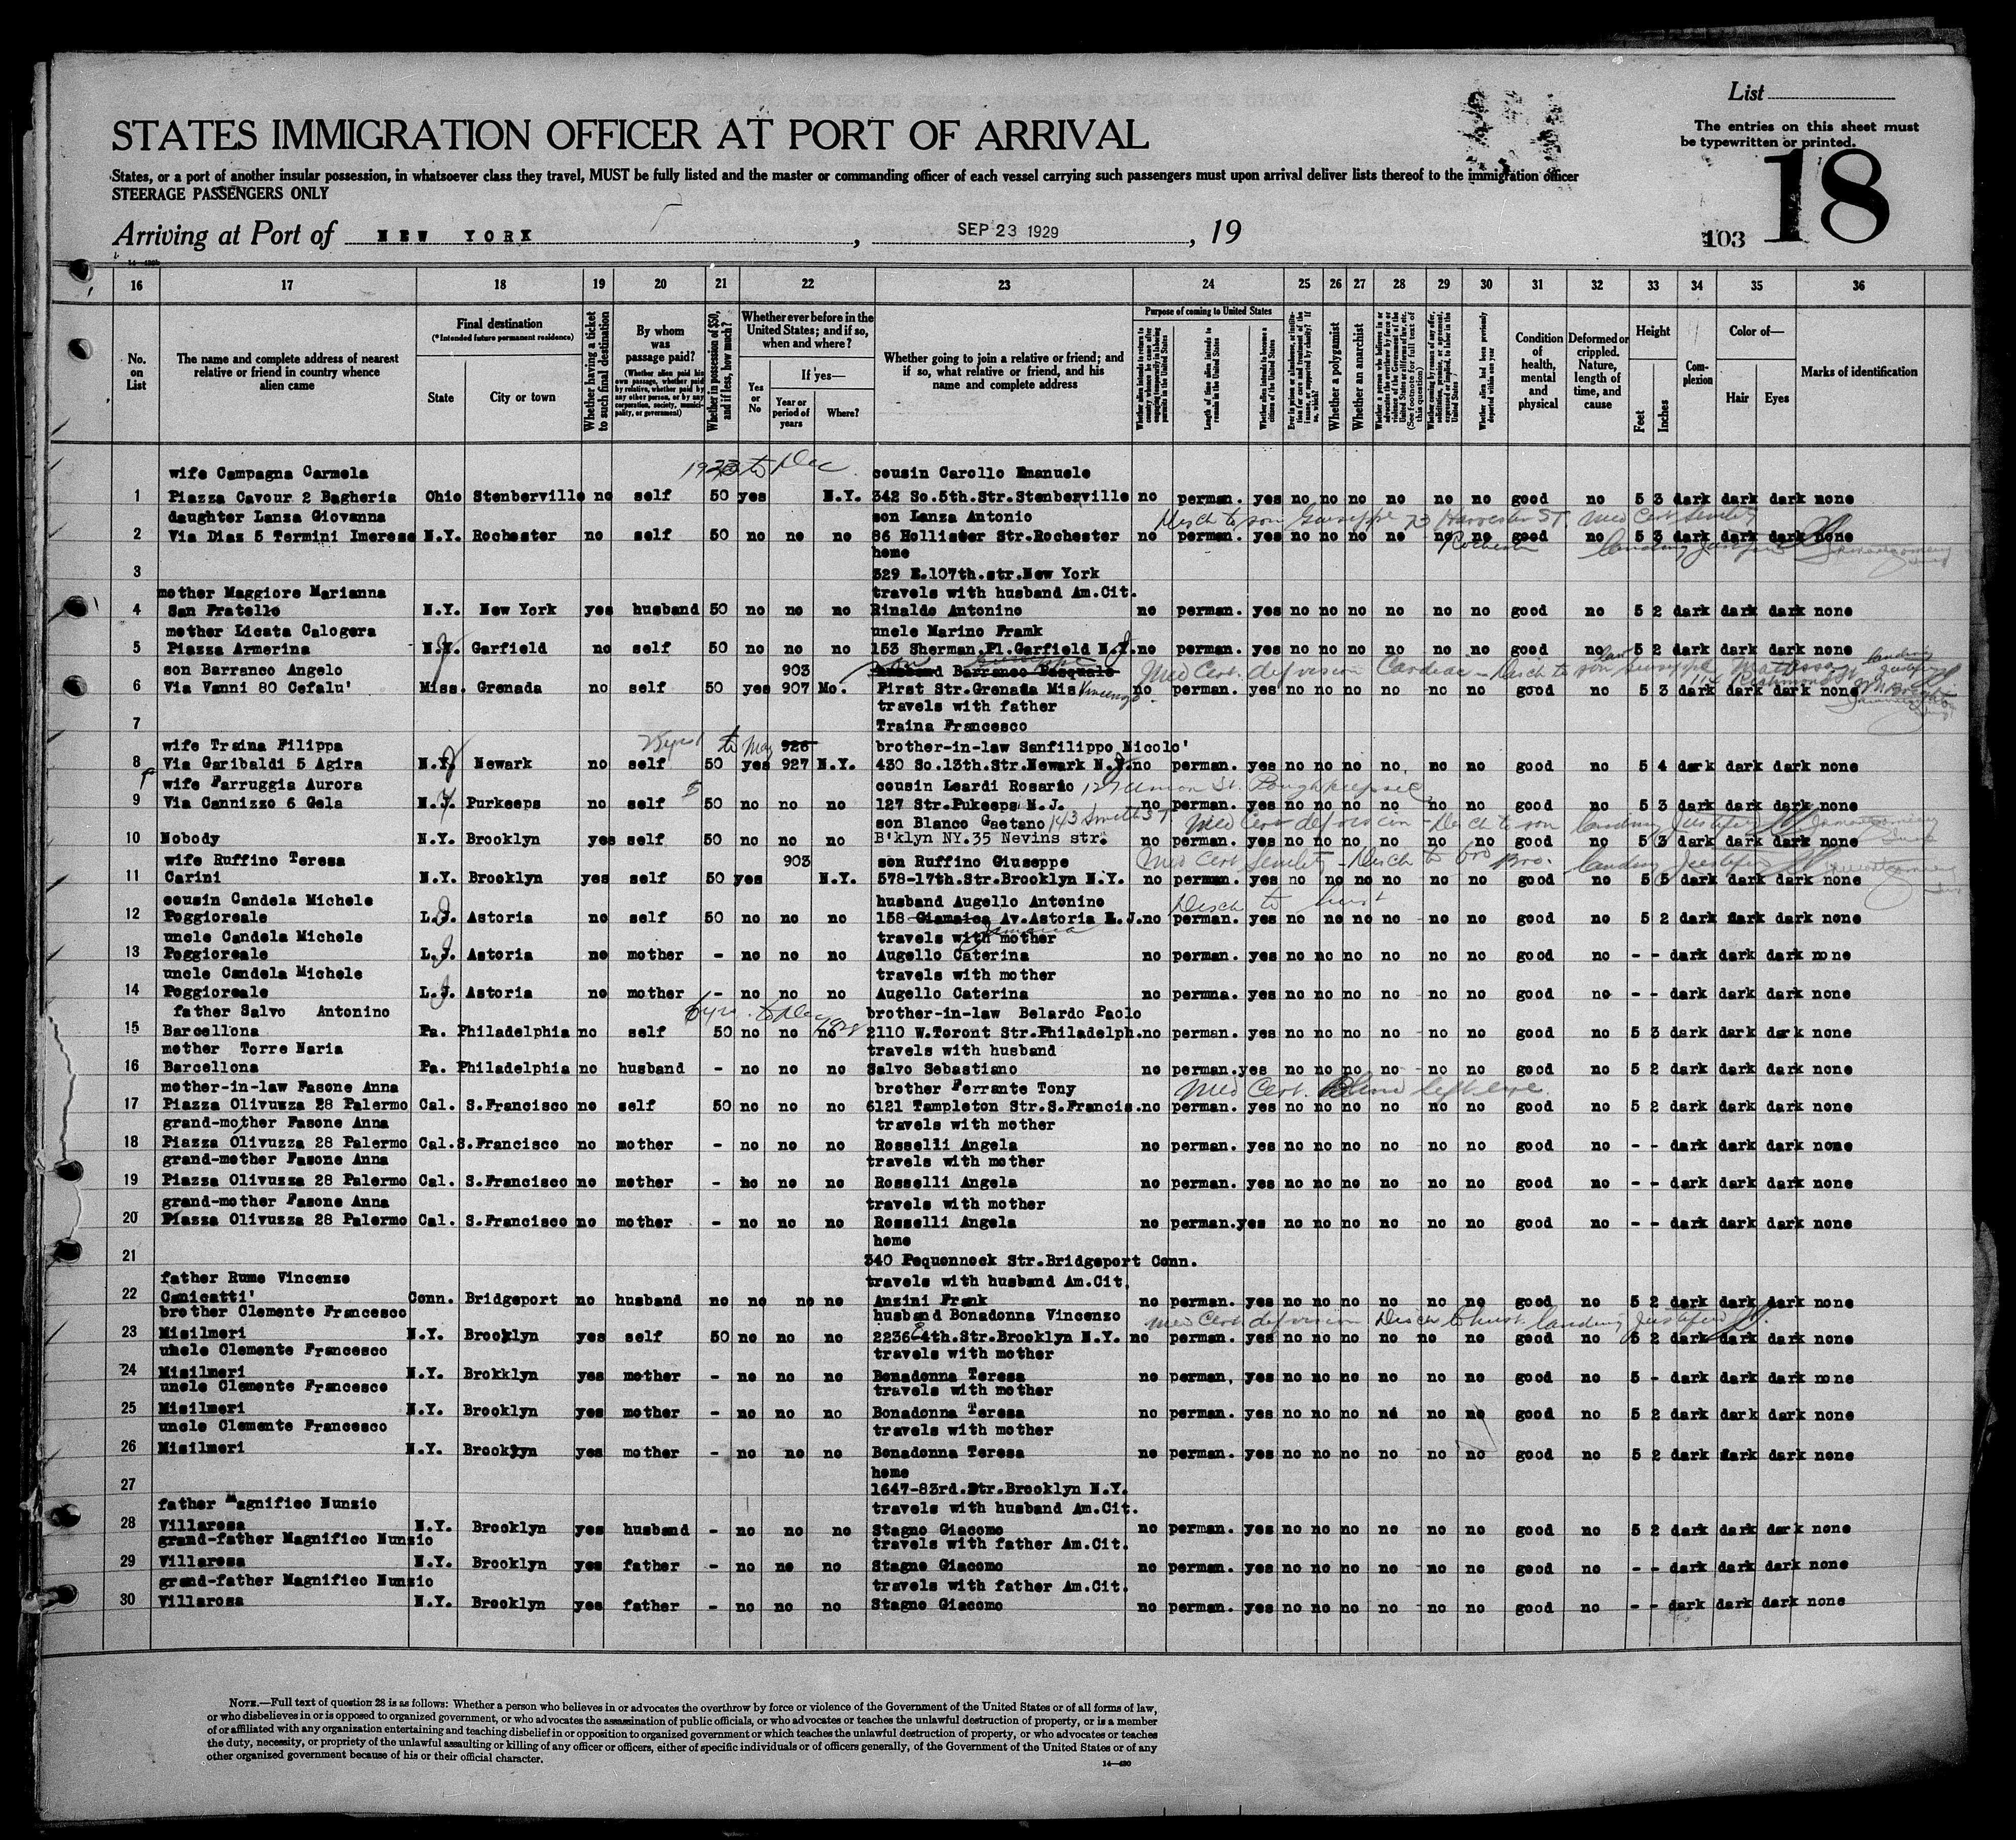 List
The entries on this sheet must
be typewritten or printed.
STATES IMMIGRATION OFFICER AT PORT OF ARRIVAL
18
States, or a port of another insular possession, in whatsoever class they travel, MUST be fully listed and the master or commanding officer of each vessel carrying such passengers must upon arrival deliver lists thereof to the immigration officer
STEERAGE PASSENGERS ONLY
Arriving at Port of NEW YORK, SEP 23 1929, 19
103
16 17 18 19 20 21 22 23 24 25 26 27 28 29 30 31 32 33 34 35 36
No. on List
The name and complete address of nearest relative or friend in country whence alien came
Final destination
(*Intended future permanent residence)
State
City or town
Whether having a ticket to such final destination
By whom was passage paid?
(Whether alien paid his own passage, whether paid by relative, whether paid by any other person, or by any corporation, society, municipality, or government)
Whether in possession of $50, and if less, how much?
Whether ever before in the United States; and if so, when and where?
Yes or No
If yes—
Year or period of years
Where?
Whether going to join a relative or friend; and if so, what relative or friend, and his name and complete address
Purpose of coming to United States
Length of time alien intends to remain in the United States
Whether alien intends to become a citizen of the United States
Whether a polygamist
Whether an anarchist
(See footnote for full text of this question)
Condition of health, mental and physical
Deformed or crippled. Nature, length of time, and cause
Height
Feet
Inches
Complexion
Color of—
Hair
Eyes
Marks of identification
wife Campagna Carmela Dec cousin Carollo Emanuele
1 Piazza Cavour 2 Bagheria Ohio Stenberville no self 50 yes N.Y. 342 So.5th.Str.Stenberville no perman. yes no no no no no no good no 5 3 dark dark dark none
daughter Lanza Giovanna son Lanza Antonio Disch to son Giuseppe 73 Harvester ST. Med Cert Senility
2 Via Dias 5 Termini Imerese N.Y. Rochester no self 50 no no no 86 Hollister Str.Rochester no perman. yes no no no no no no good no 5 3 dark dark dark none
Rochester landing justified
home
3 329 E.107th.str.New York
mother Maggiore Marianna travels with husband Am.Cit.
4 San Fratello N.Y. New York yes husband 50 no no no Rinaldo Antonino no perman. yes no no no no no no good no 5 2 dark dark dark none
mother Licata Calogera uncle Marino Framk
5 Piazza Armerina Garfield no self 50 no no no 153 Sherman.Pl.Garfield N.J. no perman. yes no no no no no no good no 5 2 dark dark dark none
son Barranco Angelo 903 husband Barranco Pasquale Giuseppe Med Cert. def vision Cardiac - Disch to son
6 Via Vanni 80 Cefalu' Miss. Grenada no self 50 yes 907 Mo. First Str.Grenada Mis Vincenzo no perman. yes no no no no no no good no 5 3 dark dark dark none
travels with father
7 Traina Francesco
wife Traina Filippa to May 926 brother-in-law Sanfilippo Nicolo'
8 Via Garibaldi 5 Agira N.J. Newark no self 50 yes 927 N.Y. 430 So.13th.Str.Newark N.J. no perman. yes no no no no no no good no 5 4 dark dark dark none
wife Farruggia Aurora cousin Leardi Rosario 127 Union St. Poughkeepsie
9 Via Cannizzo 6 Gela Purkeeps no self 50 no no no 127 Str.Pukeeps N.J. no perman. yes no no no no no no good no 5 3 dark dark dark none
son Blanco Gaetano 143 Smith ST. Med Cert def vision - Disch to son landing justified
10 Nobody N.Y. Brooklyn yes self 50 no no no B'klyn NY.35 Nevins str. no perman. yes no no no no no no good no 5 3 dark dark dark none
wife Ruffino Teresa 903 son Ruffino Giuseppe Med Cert Senility - Disch to landing justified
11 Carini N.Y. Brooklyn yes self 50 yes N.Y. 578-17th.Str.Brooklyn N.Y. no perman. yes no no no no no no good no 5 5 dark dark dark none
cousin Candela Michele husband Augello Antonino Disch to hust
12 Poggioreale Astoria no self 50 no no no 158-Giamaica Av.Astoria L.J. no perman. yes no no no no no no good no 5 2 dark dark dark none
Jamaica
uncle Candela Michele travels with mother
13 Poggioreale Astoria no mother - no no no Augello Caterina no perman. yes no no no no no no good no - - dark dark dark none
uncle Candela Michele travels with mother
14 Poggioreale Astoria no mother - no no no Augello Caterina no permna. yes no no no no no no good no - - dark dark dark none
father Salvo Antonino brother-in-law Belardo Paolo
15 Barcellona Pa. Philadelphia no self 50 no no no 2110 W.Toront Str.Philadelph. no perman. yes no no no no no no good no 5 3 dark dark dark none
mother Torre Naria travels with husband
16 Barcellona Pa. Philadelphia no husband - no no no Salvo Sebastiano no perman. yes no no no no no no good no 5 2 dark dark dark none
mother-in-law Fasone Anna brother Ferrante Tony Med Cert. Blind left eye.
17 Piazza Olivuzza 28 Palermo Cal. S.Francisco no self 50 no no no 6121 Tampleton Str.S.Francis. no perman. yes no no no no no no good no 5 2 dark dark dark none
grand-mother Fasone Anna travels with mother
18 Piazza Olivuzza 28 Palermo Cal. S.Francisco no mother - no no no Rosselli Angela no perman. yes no no no no no no good no - - dark dark dark none
grand-mother Fasone Anna travels with mother
19 Piazza Olivuzza 28 Palermo Cal. S.Francisco no mother - no no no Rosselli Angela no perman. yes no no no no no no good no - - dark dark dark none
grand-mother Fasone Anna travels with mother
20 Piazza Olivuzza 28 Palermo Cal. S.Francisco no mother - no no no Rosselli Angela no perman. yes no no no no no no good no - - dark dark dark none
home
21 340 Pequonnock Str.Bridgeport Conn.
father Rume Vincenzo travels with husband Am.Cit.
22 Canicatti' Conn. Bridgeport no husband no no no no Anzini Frank no perman. yes no no no no no no good no 5 2 dark dark dark none
brother Clemente Francesco husband Bonadonna Vincenzo Med Cert def vision Disch to hust. landing justified
23 Misilmeri N.Y. Brooklyn yes self 50 no no no 4th.Str.Brooklyn N.Y. no perman. yes no no no no no no good no 5 2 dark dark dark none
uncle Clemente Francesco travels with mother
24 Misilmeri N.Y. Brokklyn yes mother - no no no Bonadonna Teresa no perman, yes no no no no no no good no 5 - dark dark dark none
uncle Clemente Francesco travels with mother
25 Misilmeri N.Y. Brooklyn yes mother - no no no Bonadonna Teresa no perman. yes no no no no no no good no 5 2 dark dark dark none
uncle Clemente Francesco travels with mother
26 Misilmeri N.Y. Brooklyn yes mother - no no no Bonadonna Teresa no perman. yes no no no no no no good no 5 2 dark dark dark none
home
27 1647-83rd.Str.Brooklyn N.Y.
father Magnifico Nunzio travels with husband Am.Cit.
28 Villarosa N.Y. Brooklyn yes husband - no no no Stagno Giacomo no perman. yes no no no no no no good no 5 2 dark dark dark none
grand-father Magnifico Nunzio travels with father Am.Cit.
29 Villarosa N.Y. Brooklyn yes father - no no no Stagno Giacomo no perman. yes no no no no no no good no - - dark dark dark none
grand-father Magnifico Nunzio travels with father Am.Cit.
30 Villarosa N.Y. Brooklyn yes father - no no no Stagno Giacomo no perman. yes no no no no no no good no - - dark dark dark none
NOTE.—Full text of question 28 is as follows: Whether a person who believes in or advocates the overthrow by force or violence of the Government of the United States or of all forms of law,
or who disbelieves in or is opposed to organized government, or who advocates the assassination of public officials, or who advocates or teaches the unlawful destruction of property, or is a member
of or affiliated with any organization entertaining and teaching disbelief in or opposition to organized government or which teaches the unlawful destruction of property, or who advocates or teaches
the duty, necessity, or propriety of the unlawful assaulting or killing of any officer or officers, either of specific individuals or of officers generally, of the Government of the United States or of any
other organized government because of his or their official character.
14—430